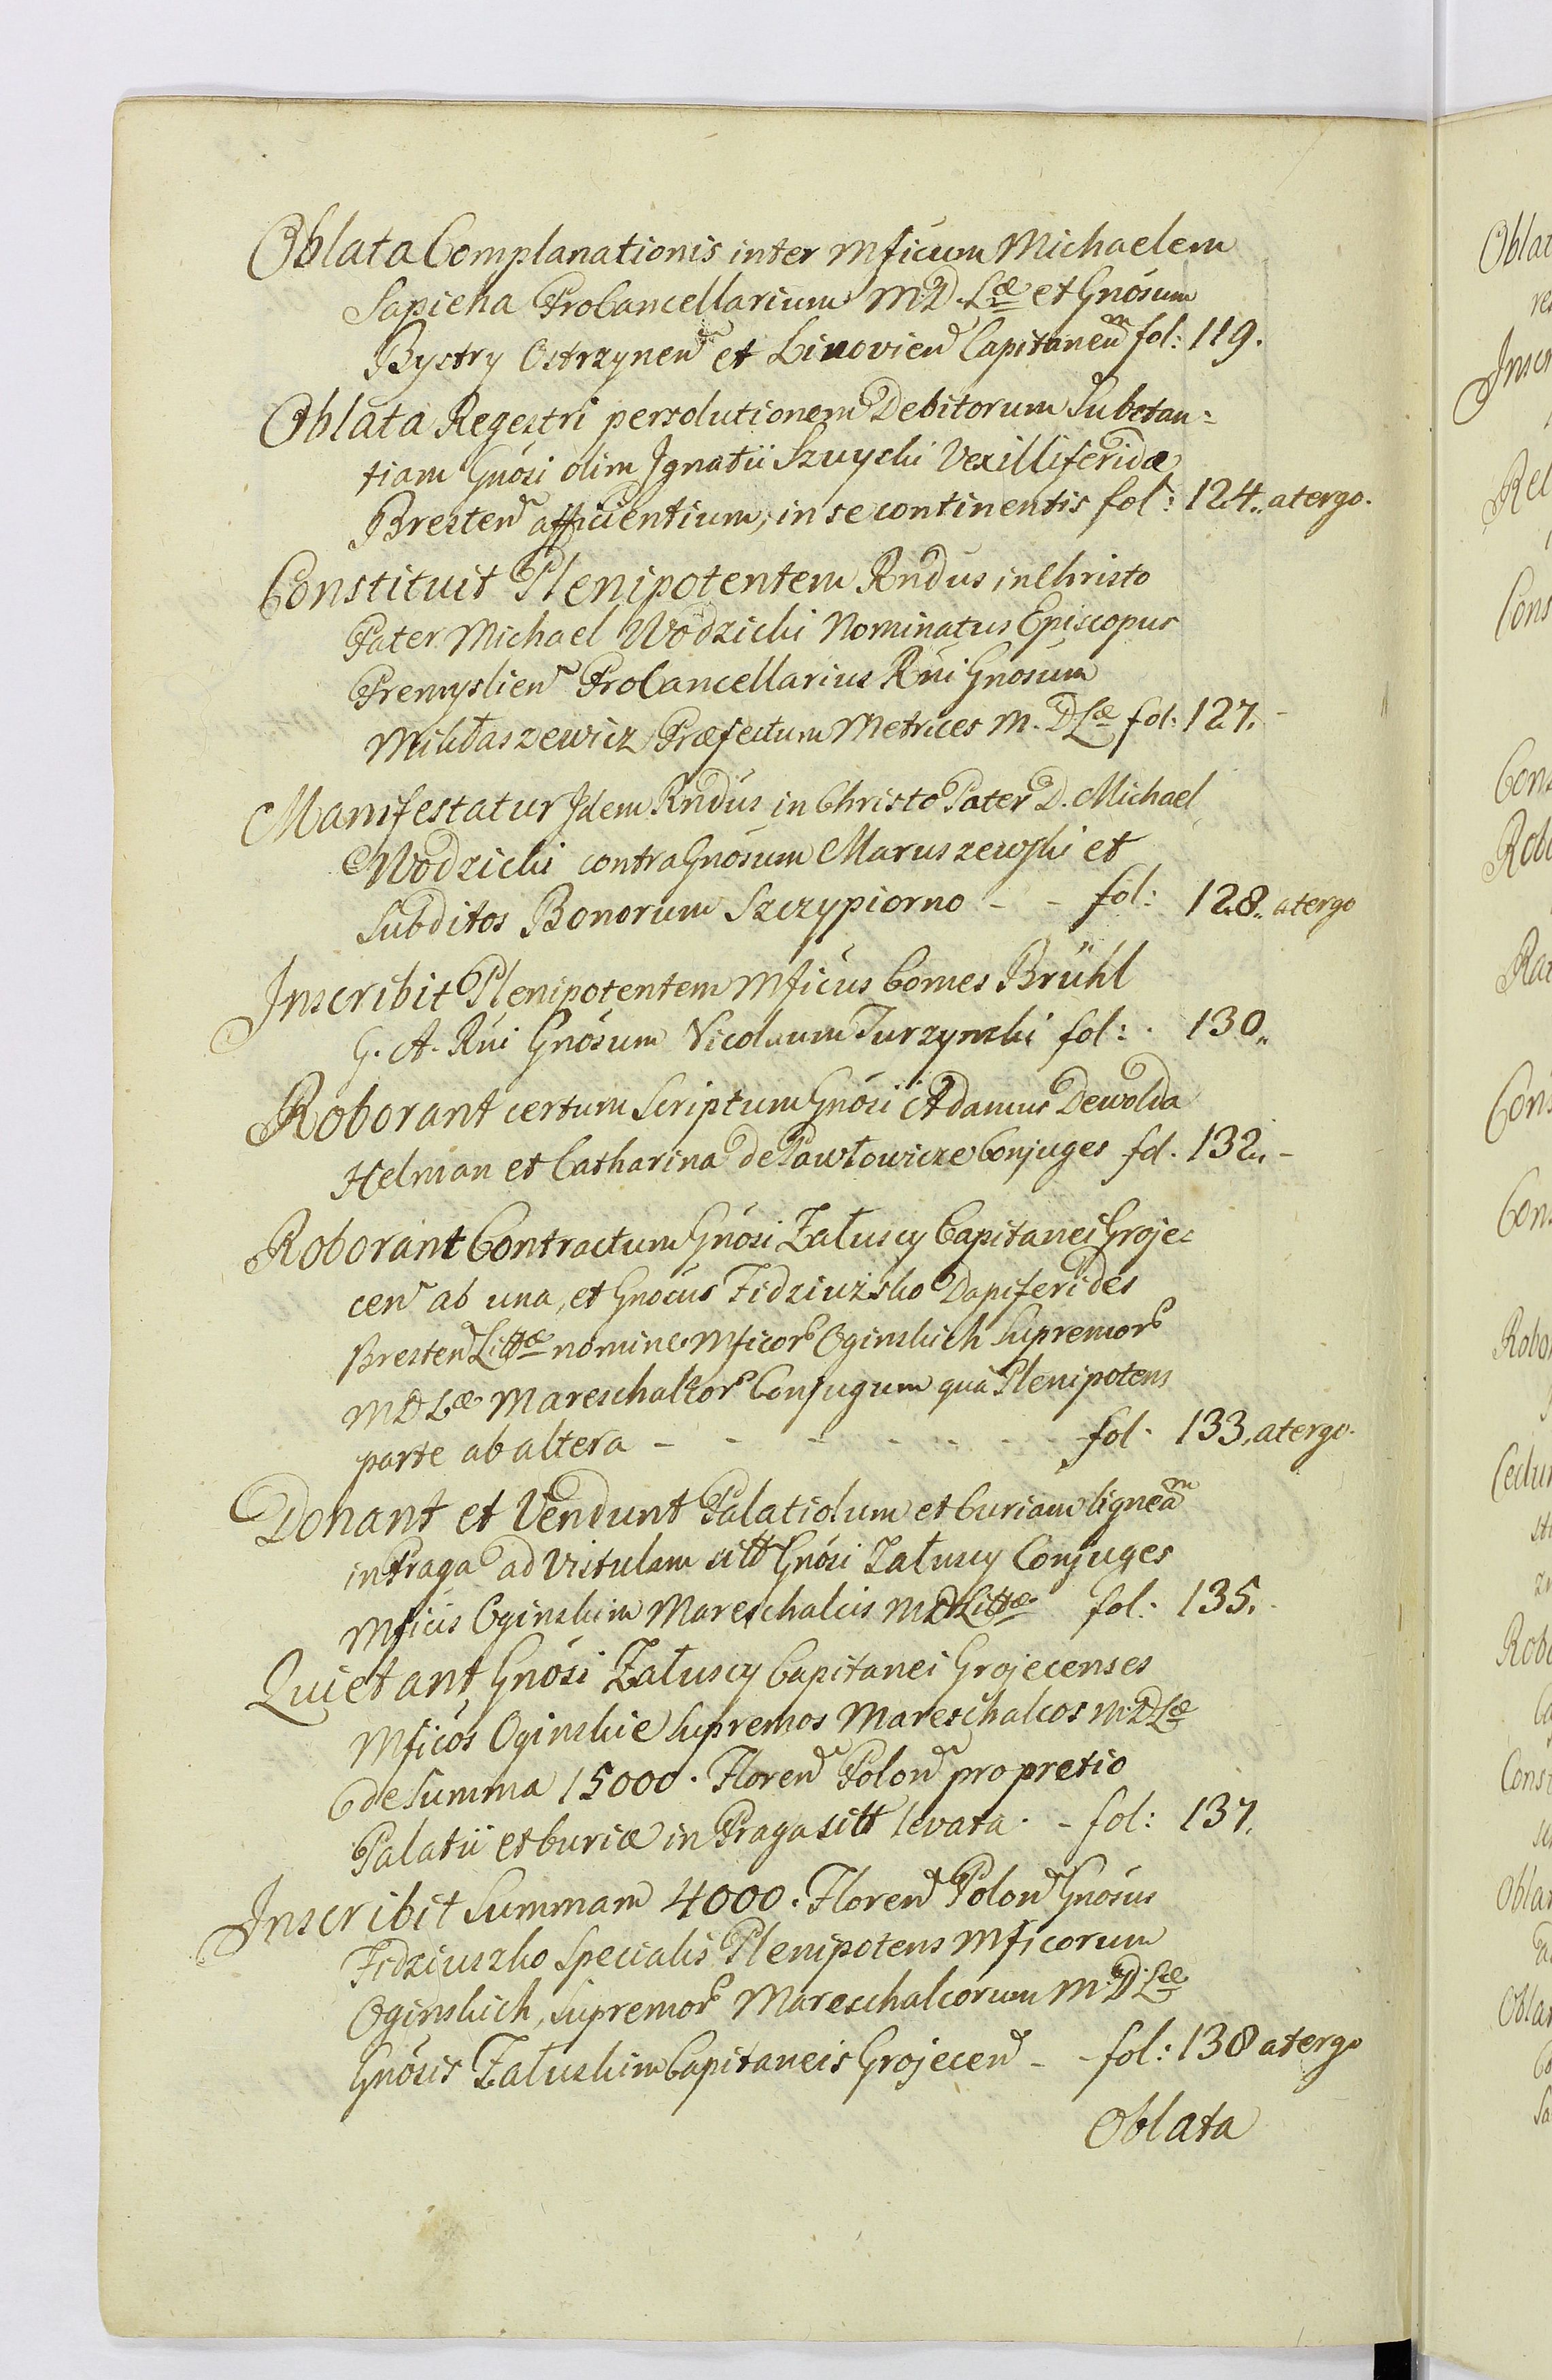 Oblata Complanationis inter Mficum Michaelem
Sapieha ProCancellarium M D Læ et Gnosum
Bystry Ostrzynen et Linovien Capitaneum fol: 119.
Oblata Regestri persolutionem Debitorum Substan=
tiam Gnosi olim Ignatii Szuyski Vexilliferidæ
Bresten afficientium, in se continentis fol: 124. atergo.
Constituit Plenipotentem Rndus in Christo
Pater Michael Wodzicki Nominatus Episcopus
Premyslien ProCancellarius Rni Gnosum
Mikłaszewicz Præfectum Metrices M. D Læ fol: 127.
Manifestatur Idem Rndus in Christo Pater D. Michael
Wodzicki contra Gnosum Maruszewski et
Subditos Bonorum Szczypiorno - - fol: 128. atergo
Inscribit Plenipotentem Mficus Comes Brühl
G. A. Rni Gnosum Nicolaum Turzynski fol: 130.
Roborant certum Scriptum Gnosi Adamus Dewolda
Helman et Catharina de Pawłowicze Conjuges fol. 132. -
Roborant Contractum Gnosi Załuscy Capitanei Groje=
cen ab una, et Gnosus Fidziuszko Dapiferides
Bresten Littæ nomine Mficor Oginskich Supremor
M D Læ Mareschalcor Conjugum qua Plenipotens
parte ab altera - - - - - - fol. 133. atergo.
Donant et Vendunt Palatiolum et Curiam ligneam
in Praga ad Vistulam sitt Gnosi Załuscy Conjuges
Mficis Oginskim Mareschalcis M D Littæ fol. 135.
Quietant Gnosi Załuscy Capitanei Grojecenses
Mficos Oginskie Supremos Mareschalcos M D Læ
de Summa 15000. Floren Polon pro pretio
Palatii et Curiæ in Praga sitt levata. - fol: 137.
Inscribit Summam 4000. Floren Polon Gnosus
Fidziuszko Specialis Plenipotens Mficorum
Oginskich, Supremor Mareschalcorum M D Læ
Gnosis Załuskim Capitaneis Grojecen - - fol: 138 atergo
Oblata